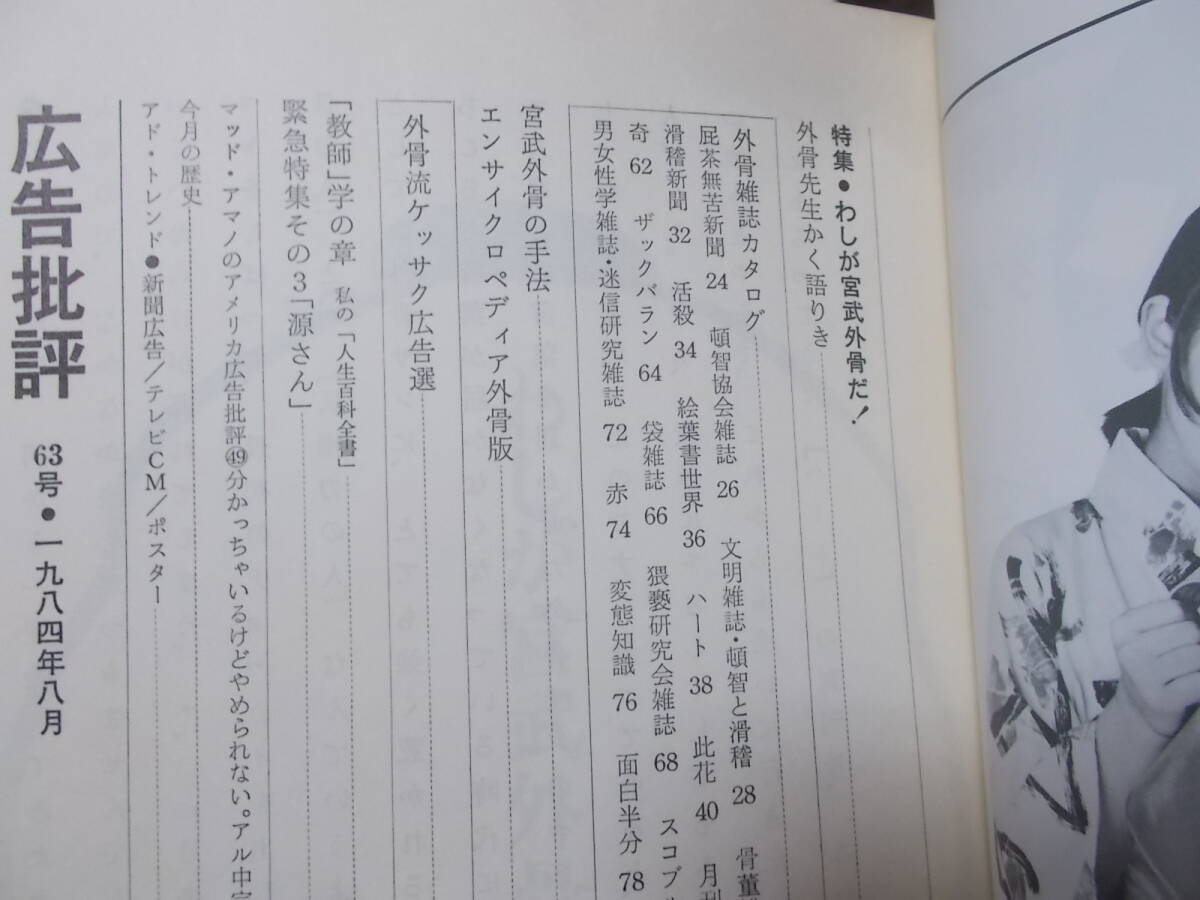 特集●わしが宮武外骨だ!
外骨先生かく語りき
外骨雑誌カタログ
屁茶無苦新聞 24 頓智協会雑誌 26 文明雑誌・頓智と滑稽 28 骨董
滑稽新聞 32 活殺 34 絵葉書世界 36 ハート 38 此花 40 月刊
奇 62 ザックバラン 64 袋雑誌 66 猥褻研究会雑誌 68 スコブル
男女性学雑誌・迷信研究雑誌 72 赤 74 変態知識 76 面白半分 78
宮武外骨の手法
エンサイクロペディア外骨版
外骨流ケッサク広告選
「教師」学の章 私の「人生百科全書」
緊急特集その3「源さん」
マッド・アマノのアメリカ広告批評㊾分かっちゃいるけどやめられない。アル中
今月の歴史
アド・トレンド●新聞広告/テレビCM/ポスター
広告批評 63号・一九八四年八月